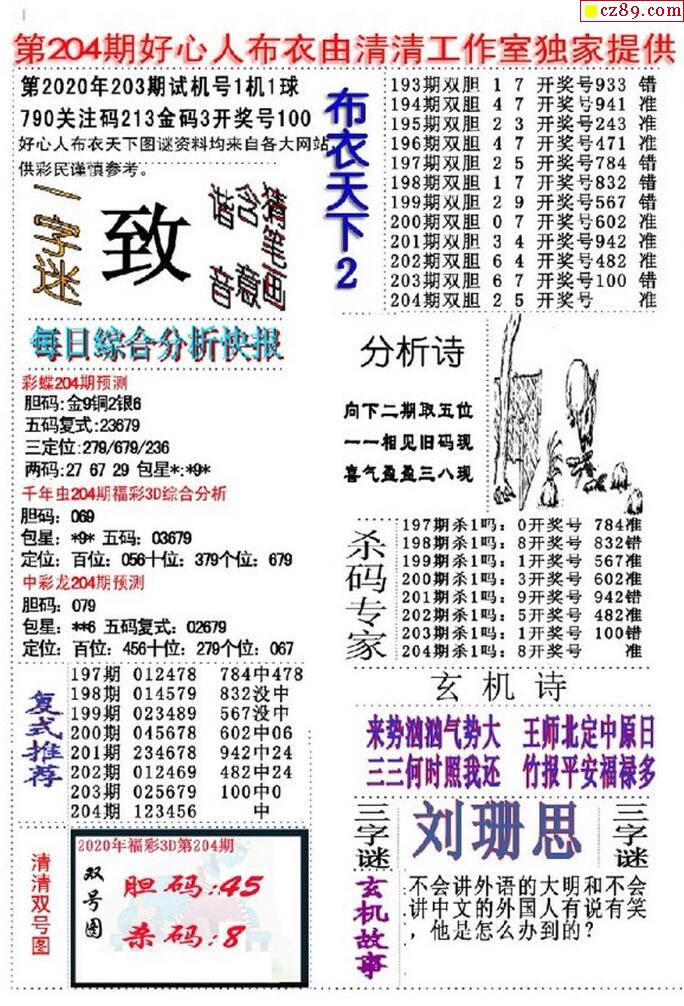 cz89.com
第204期好心人布衣由清清工作室独家提供
第2020年203期试机号1机1球
790关注码213金码3开奖号100
好心人布衣天下图谜资料均来自各大网站,
供彩民谨慎参考。
一字迷
致
谐含猜
音意笔画
布衣天下2
193期双胆 1 7 开奖号933 错
194期双胆 4 7 开奖号941 准
195期双胆 2 3 开奖号243 准
196期双胆 4 7 开奖号471 准
197期双胆 2 5 开奖号784 错
198期双胆 1 7 开奖号832 错
199期双胆 2 9 开奖号567 错
200期双胆 0 7 开奖号602 准
201期双胆 3 4 开奖号942 准
202期双胆 6 4 开奖号482 准
203期双胆 6 7 开奖号100 错
204期双胆 2 5 开奖号 准
每日综合分析快报
彩蝶204期预测
胆码:金9铜2银6
五码复式:23679
三定位:279/679/236
两码:27 67 29 包星*:*9*
千年虫204期福彩3D综合分析
胆码: 069
包星: *9* 五码: 03679
定位: 百位: 056十位: 379个位: 679
中彩龙204期预测
胆码: 079
包星: **6 五码复式: 02679
定位: 百位: 456十位: 279个位: 067
分析诗
向下二期取五位
一一相见旧码现
喜气盈盈三八现
杀码专家
197期杀1吗: 0开奖号 784准
198期杀1吗: 8开奖号 832错
199期杀1吗: 1开奖号 567准
200期杀1吗: 3开奖号 602准
201期杀1吗: 9开奖号 942错
202期杀1吗: 5开奖号 482准
203期杀1吗: 1开奖号 100错
204期杀1吗: 8开奖号 准
复式推荐
197期 012478 784中478
198期 014579 832没中
199期 023489 567没中
200期 045678 602中06
201期 234678 942中24
202期 012469 482中24
203期 025679 100中0
204期 123456 中
玄机诗
来势汹汹气势大 王师北定中原日
三三何时照我还 竹报平安福禄多
三字谜
刘珊思
三字谜
清清双号图
2020年福彩3D第204期
双号图
胆码:45
杀码:8
玄机故事
不会讲外语的大明和不会
讲中文的外国人有说有笑
，他是怎么办到的？